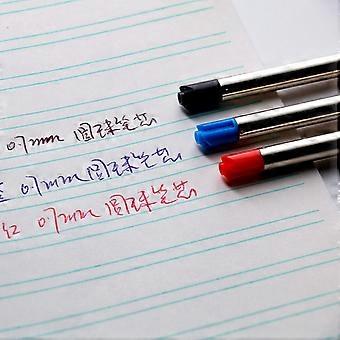 0.7mm 圆珠笔芯
蓝 0.7mm 圆珠笔芯
红 0.7mm 圆珠笔芯